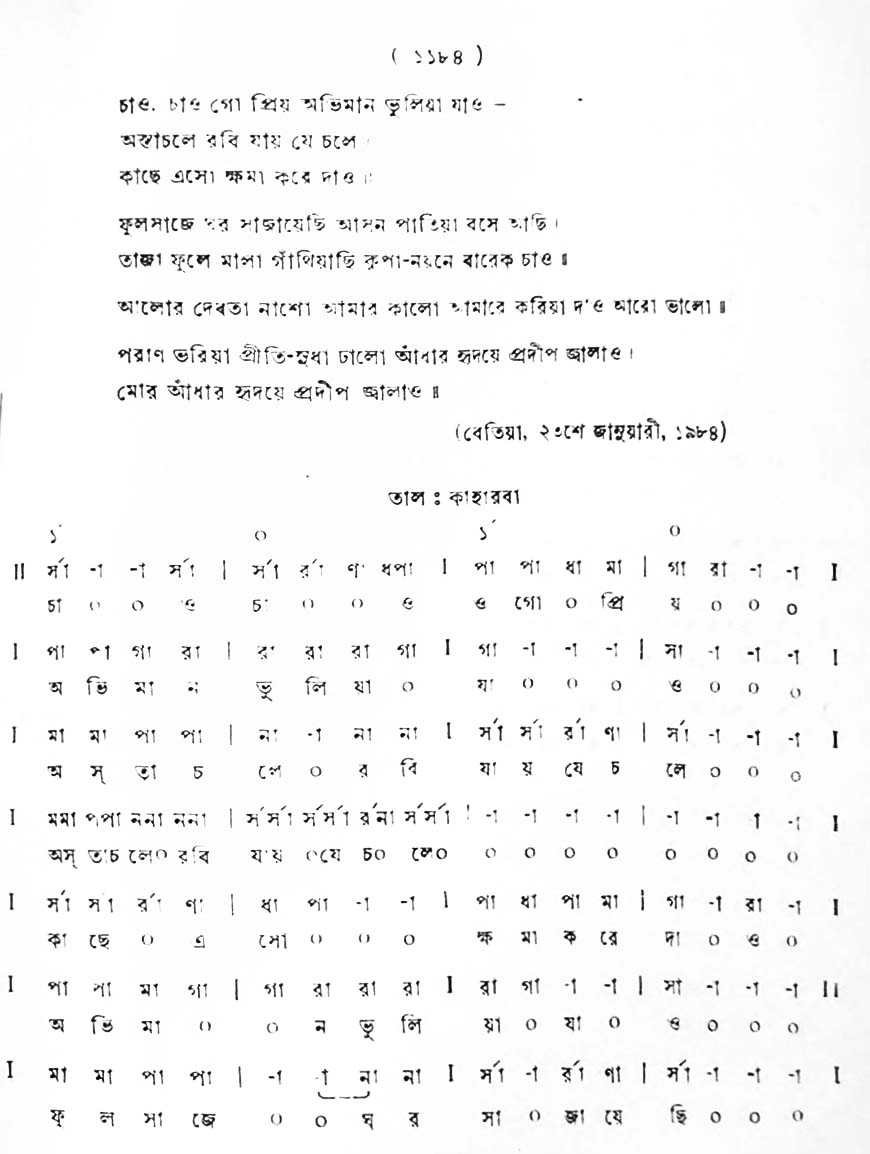 ( ১১৮৪ )
চাও. চাও গো প্রিয় অভিমান ভুলিয়া যাও –
অস্তাচলে রবি যায় যে চলে ।
কাছে এসো ক্ষমা করে দাও ॥
ফুলসাজে ঘর সাজায়েছি আসন পাতিয়া বসে আছি ।
তাজা ফুলে মালা গাঁথিয়াছি কৃপা-নয়নে বারেক চাও ॥
আলোর দেবতা নাশো আমার কালো আমারে করিয়া দাও আরো ভালো ॥
পরাণ ভরিয়া প্রীতি-সুধা ঢালো আঁধার হৃদয়ে প্রদীপ জ্বালাও ।
মোর আঁধার হৃদয়ে প্রদীপ জ্বালাও ॥
(বেতিয়া, ২৩শে জানুয়ারী, ১৯৮৪)
তাল : কাহারবা
১´ ০ ১´ ০
II র্সা -া -া র্সা | র্সা র্রা ণা ধপা I পা পা ধা মা | গা রা -া -া I
চা ০ ০ ও চা ০ ০ ও ও গো ০ প্রি য় ০ ০ ০
I পা পা গা রা | রা রা রা গা I গা -া -া -া | সা -া -া -া I
অ ভি মা ন ভু লি য়া ০ যা ০ ০ ০ ও ০ ০ ০
I মা মা পা পা | না -া না না I র্সা র্সা র্রা ণা | র্সা -া -া -া I
অ স্ তা চ লে ০ র বি যা য় যে চ লে ০ ০ ০
I মমা পপা ননা ননা | র্সর্সা র্সর্সা র্রনা র্সর্সা I -া -া -া -া | -া -া -া -া I
অস্ তাচ লে০ রবি যায় ০যে চ০ লে০ ০ ০ ০ ০ ০ ০ ০ ০
I র্সা র্সা র্রা ণা | ধা পা -া -া I পা ধা পা মা | গা -া রা -া I
কা ছে ০ এ সো ০ ০ ০ ক্ষ মা ক রে দা ০ ও ০
I পা পা মা গা | গা রা রা রা I রা গা -া -া | সা -া -া -া II
অ ভি মা ০ ০ ন ভু লি য়া ০ যা ০ ও ০ ০ ০
I মা মা পা পা | -া -া না না I র্সা -া র্রা ণা | র্সা -া -া -া I
ফু ল সা জে ০ ০ ঘ র সা ০ জা য়ে ছি ০ ০ ০